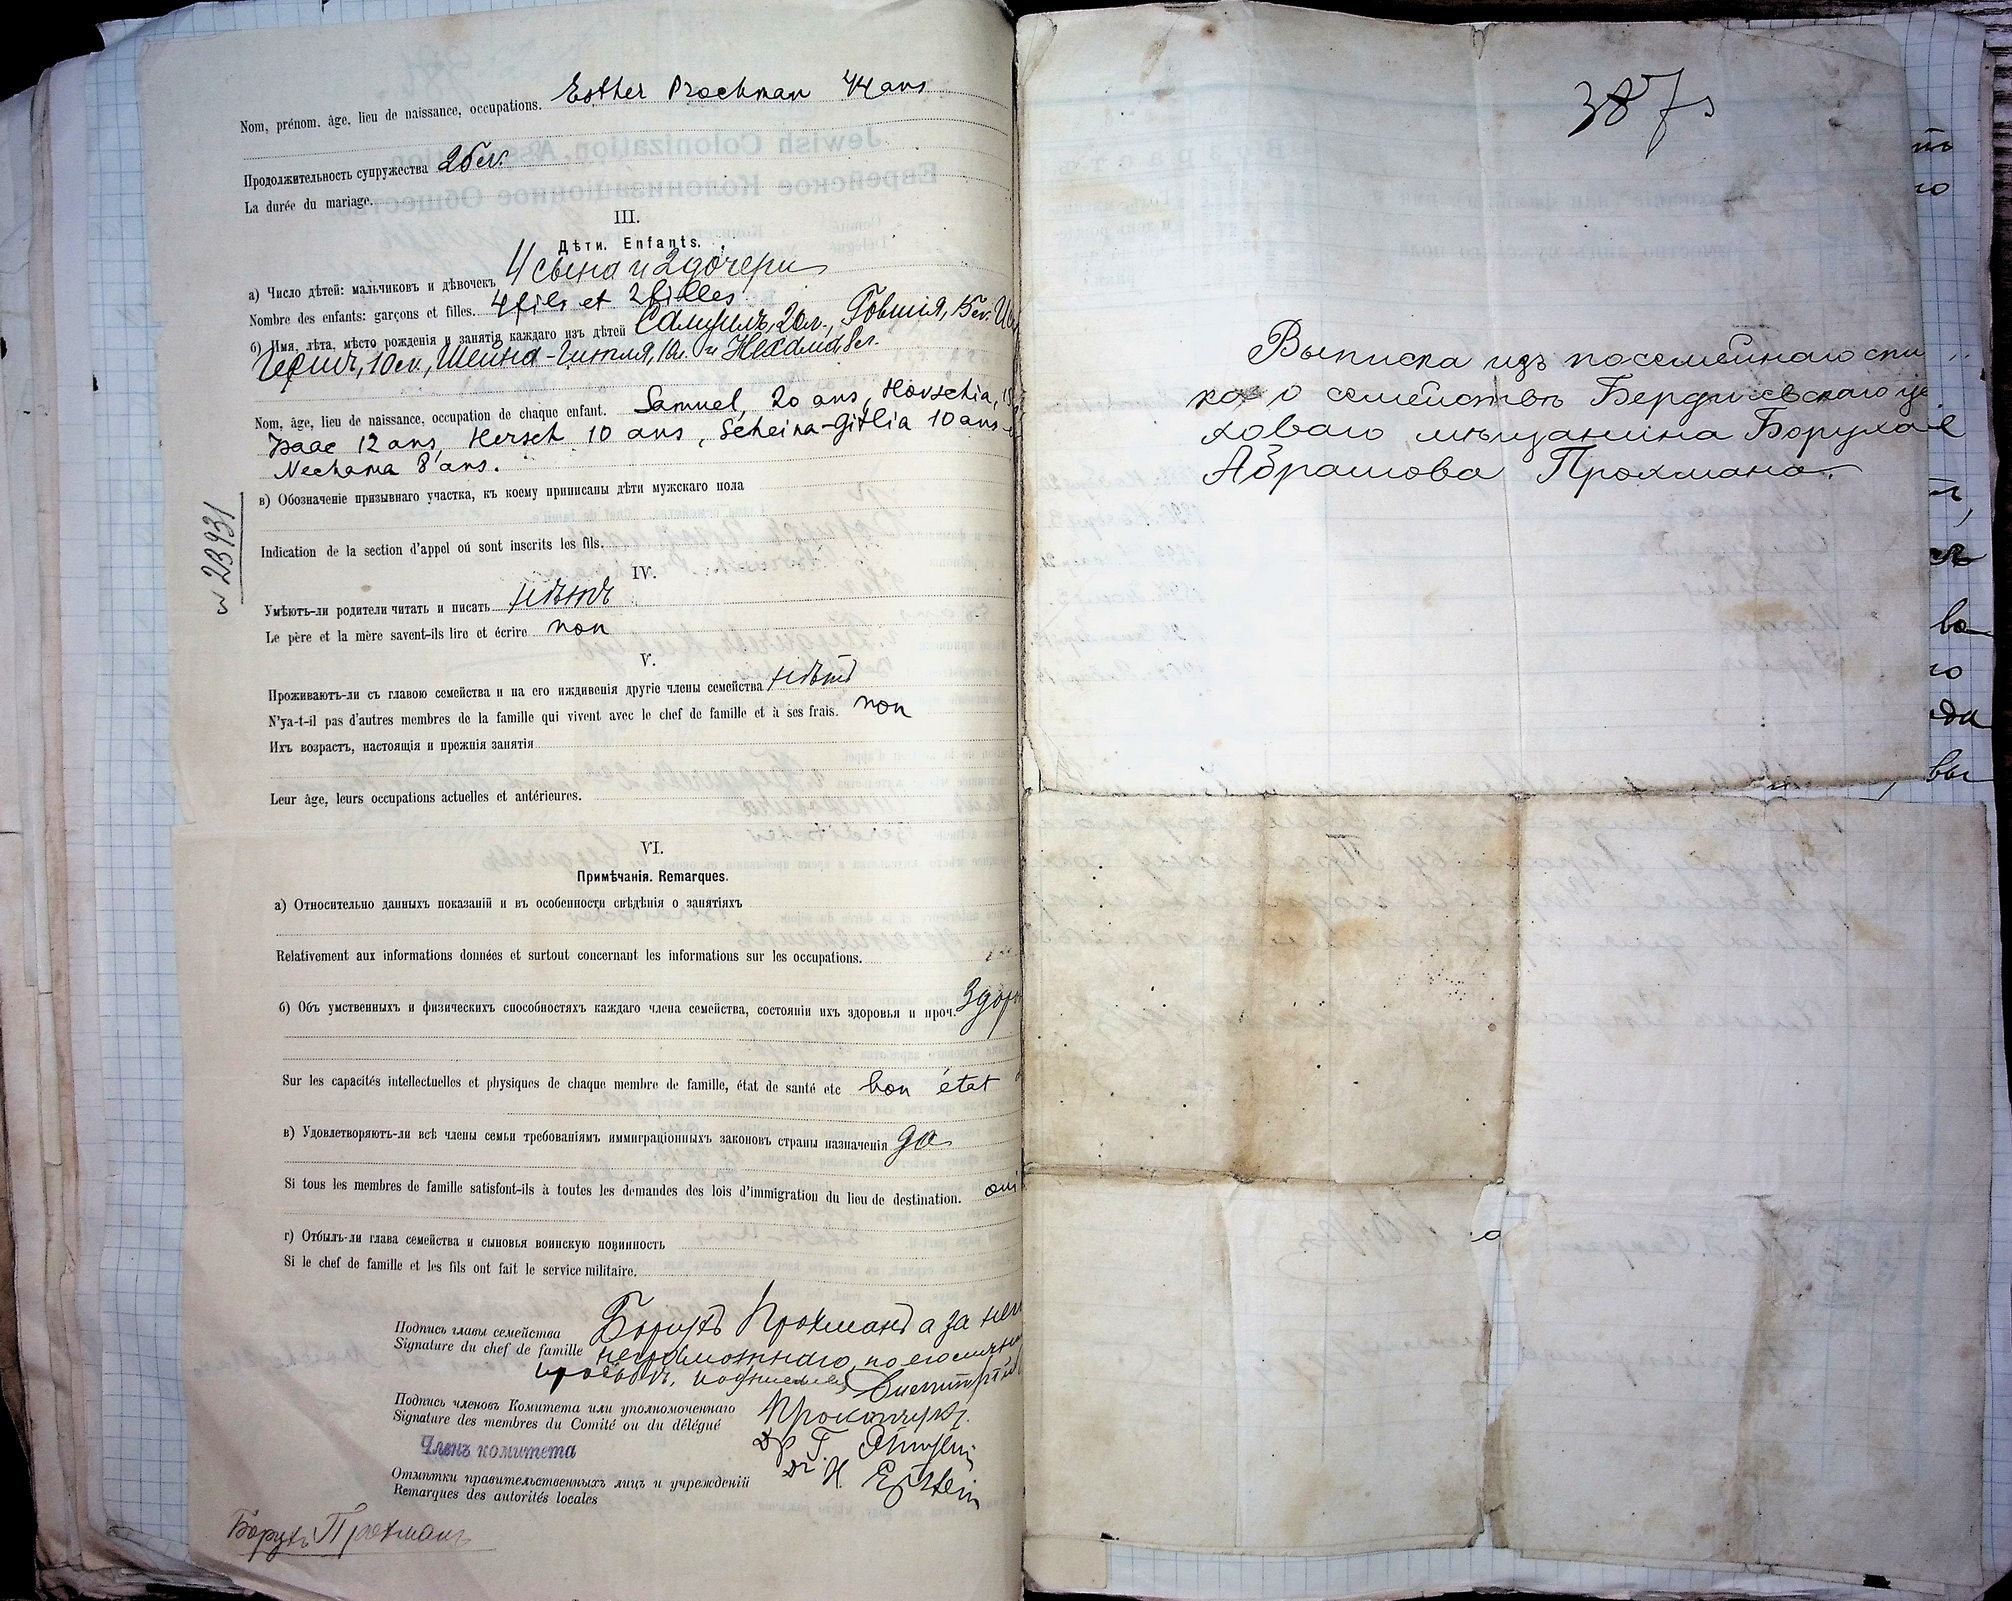 Nom, prénom, âge, lieu de naissance, occupations. Esther Prochman 44 ans
Продолжительность супружества
La durée du mariage.
III.
Дѣти. Enfants.
а) Число дѣтей: мальчиковъ и дѣвочекъ 4 сына и 2 дочери
Nombre des enfants: garçons et filles. 4 fils et 2 filles
б) Имя, лѣта, мѣсто рожденія и занятія каждаго из дѣтей Самуилъ, 20 л., Говшія,
10 л., Шейна-Гитля, 10 л. и Нехама, 8 л.
Nom, âge, lieu de naissance, occupation de chaque enfant. Samuel, 20 ans, Hovschia,
Isaac 12 ans, Hersch 10 ans, Scheina-Gitlia 10 ans
Nechama 8 ans.
в) Обозначеніе призывнаго участка, къ коему приписаны дѣти мужскаго пола
Indication de la section d'appel oú sont inscrits les fils.
№ 23931
IV.
Умѣютъ-ли родители читать и писать нѣтъ
Le père et la mère savent-ils lire et écrire non
V.
Проживаютъ-ли съ главою семейства и на его иждивенія другіе члены семейства нѣтъ
N'ya-t-il pas d'autres membres de la famille qui vivent avec le chef de famille et à ses frais. non
Ихъ возрастъ, настоящія и прежнія занятія
Leur âge, leurs occupations actuelles et antérieures.
VI.
Примѣчанія. Remarques.
а) Относительно данныхъ показаній и въ особенности свѣдѣнія о занятіяхъ
Relativement aux informations données et surtout concernant les informations sur les occupations.
б) Объ умственныхъ и физическихъ способностяхъ каждаго члена семейства, состояніи ихъ здоровья и проч.
Sur les capacités intellectuelles et physiques de chaque membre de famille, état de santé etc bon état
в) Удовлетворяютъ-ли всѣ члены семьи требованіямъ иммиграціонныхъ законовъ страны назначенія да
Si tous les membres de famille satisfont-ils à toutes les demandes des lois d'immigration du lieu de destination. oui
г) Отбылъ-ли глава семейства и сыновья воинскую повинность
Si le chef de famille et les fils ont fait le service militaire.
Подпись главы семейства Борухъ Прохманъ а за него
Signature du chef de famille неграмотнаго, по его
просьбѣ,
Подпись членовъ Комитета или уполномоченнаго
Signature des membres du Comité ou du délégué
Членъ комитета
Dr H. Epstein
Отмѣтки правительственныхъ лицъ и учрежденій
Remarques des autorités locales
Борухъ Прохманъ
387
Выписка изъ посемейнаго спи
ска о семействѣ Бердичевскаго це
ховаго мѣщанина Боруха
Абрамова Прохмана.